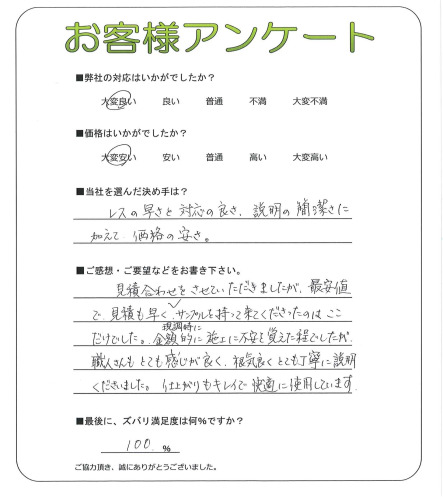 お客様アンケート
■弊社の対応はいかがでしたか？
大変良い 良い 普通 不満 大変不満
■価格はいかがでしたか？
大変安い 安い 普通 高い 大変高い
■当社を選んだ決め手は？
レスの早さと対応の良さ、説明の簡潔さに
加えて価格の安さ。
■ご感想・ご要望などをお書き下さい。
見積合わせをさせていただきましたが、最安値
で、見積も早く、サンプルを持って来てくださったのはここ
だけでした。現調時に金額的に施工に不安を覚えた程でしたが、
職人さんもとても感じが良く、根気良くとても丁寧に説明
くださいました。仕上がりもキレイで快適に使用しています。
■最後に、ズバリ満足度は何%ですか？
100 %
ご協力頂き、誠にありがとうございました。